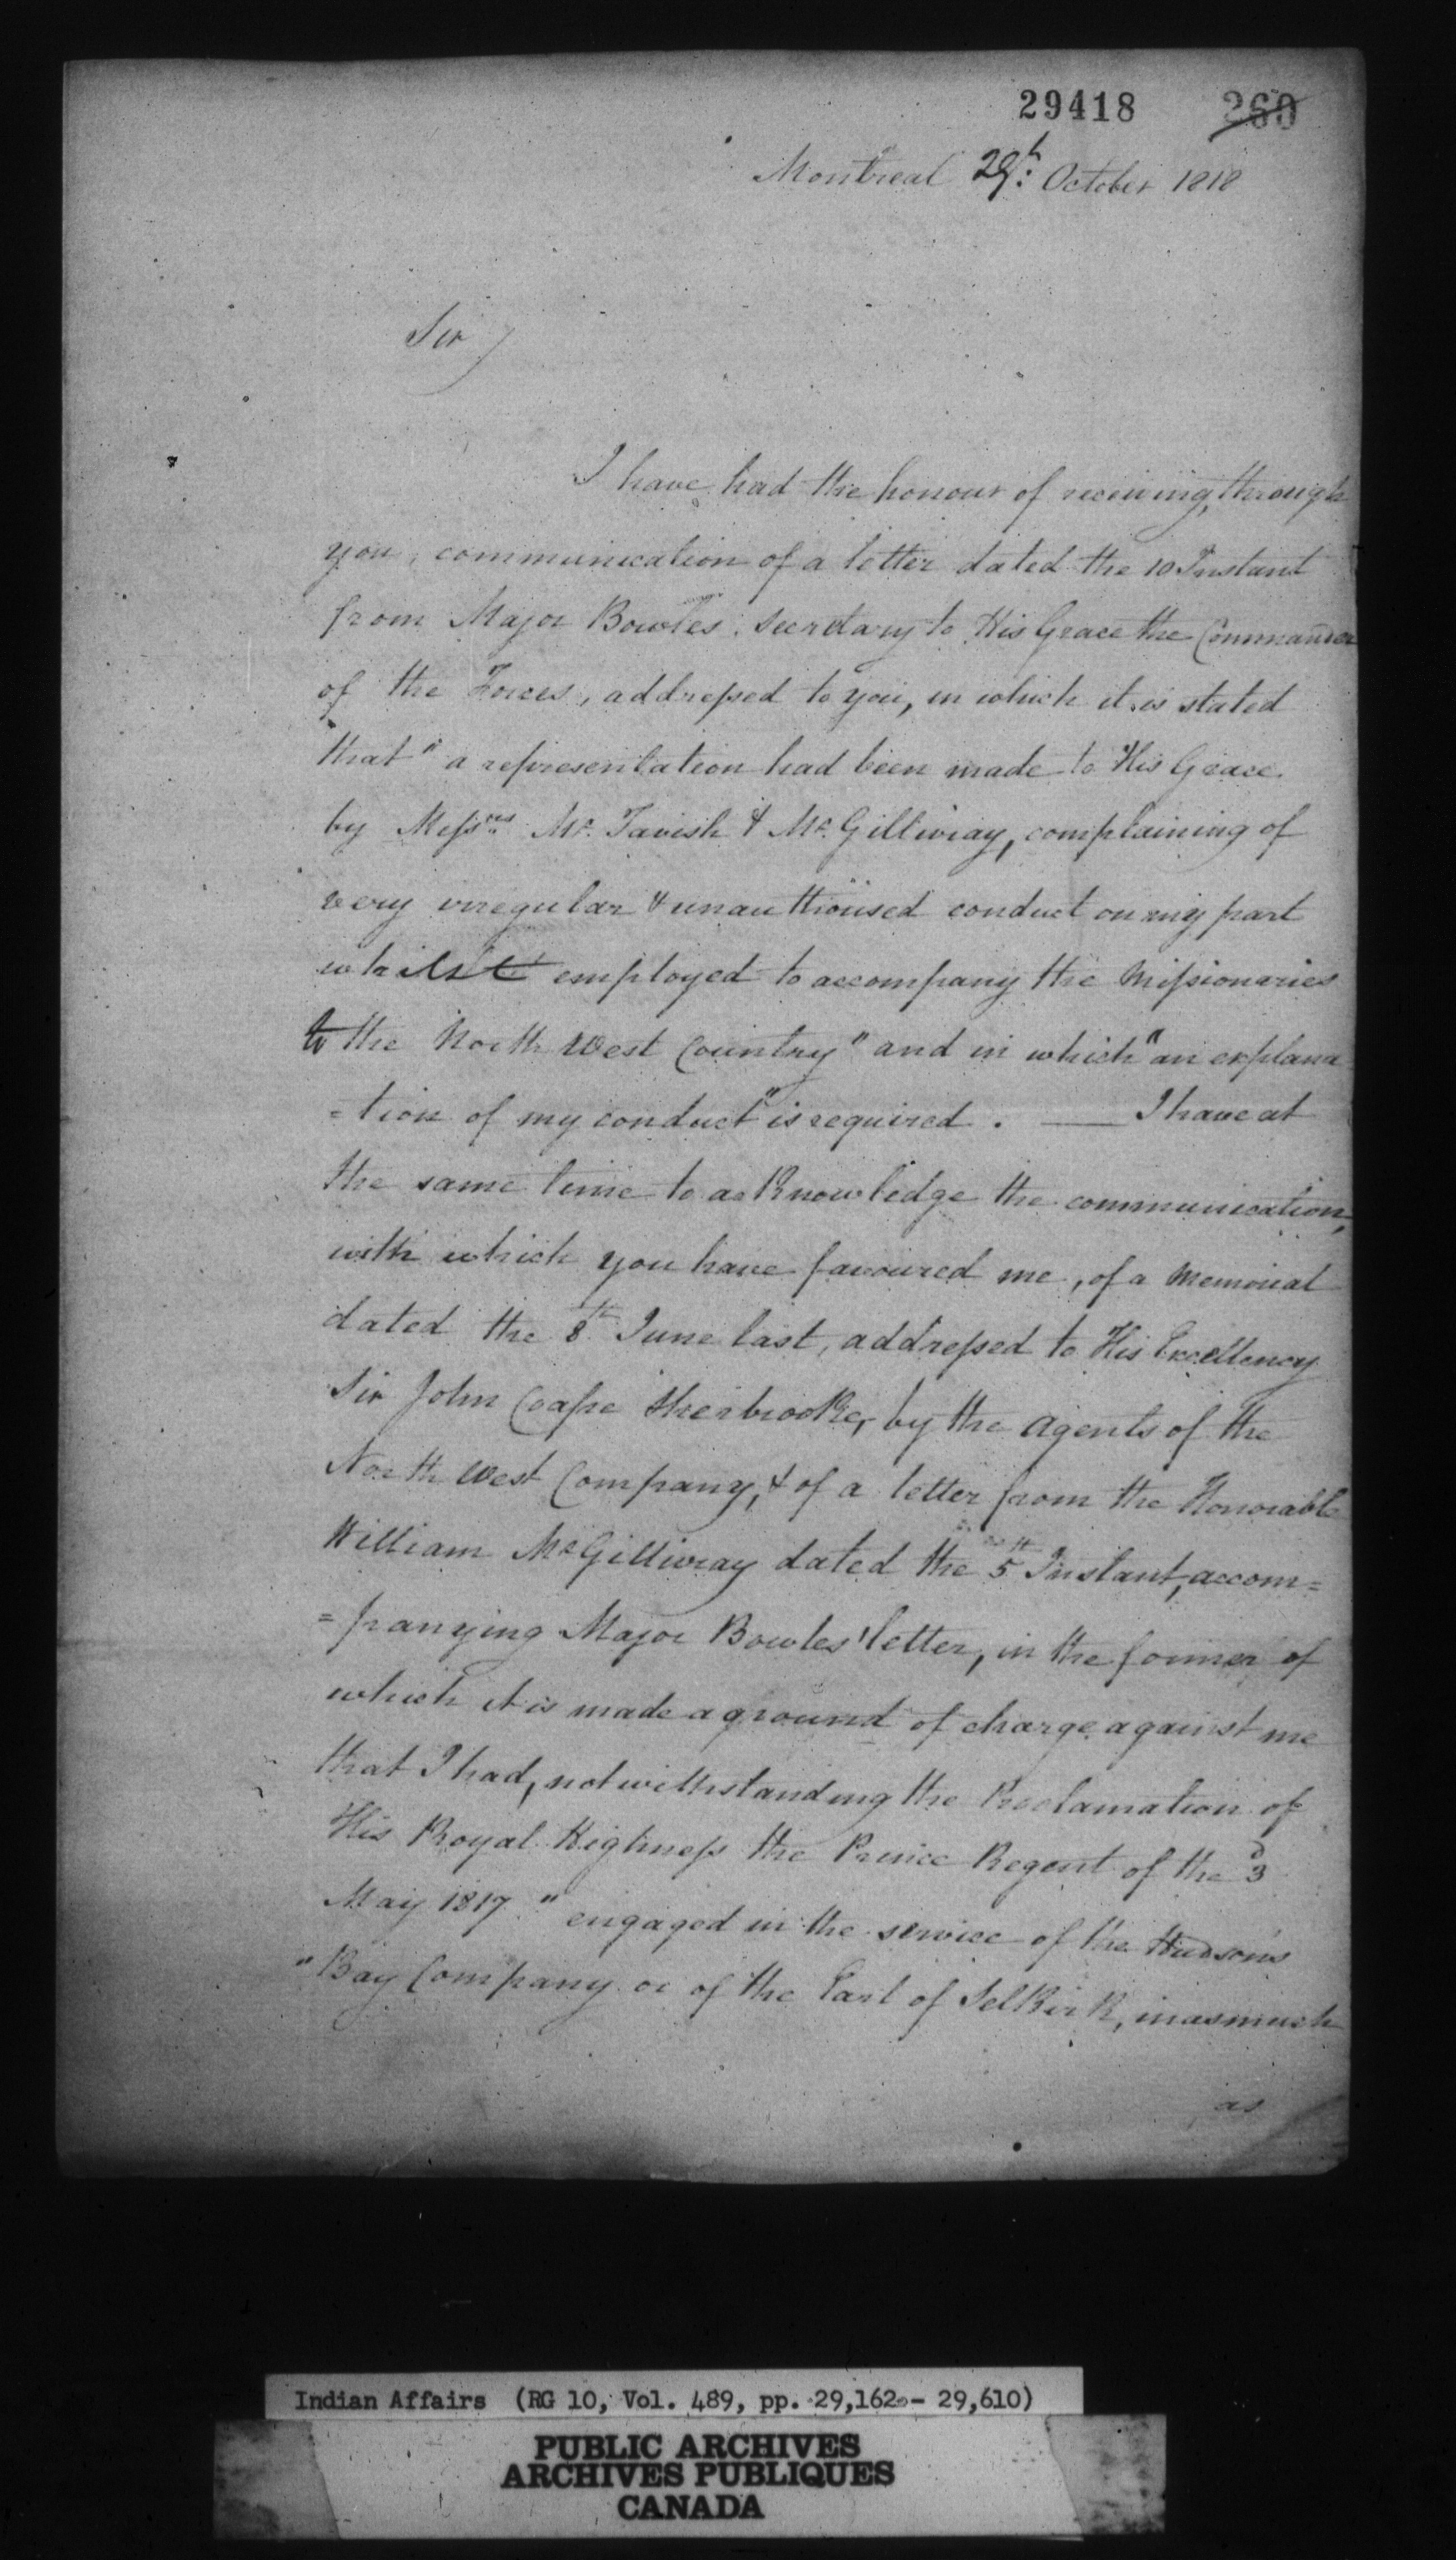 29418 260
Montreal 29th: October 1818
Sir,
I have had the honour of receiving, through
you, communication of a letter dated the 10 Instant
from Major Bowles, Secretary to His Grace the Commander
of the Forces, addressed to you, in which it is stated
that "a representation had been made to His Grace
by Messres. Mc. Tavish & Mc. Gillivray, complaining of
very irregular & unauthorised conduct on my part
whilst employed to accompany the Missionaries
to the North West Country" and in which "an explana
=tion of my conduct" is required. — I have at
the same time to acknowledge the communication,
with which you have favoured me, of a Memorial
dated the 8th June last, addressed to His Excellency
Sir John Coape Sherbrooke, by the Agents of the
North West Company, & of a letter from the Honorable
William McGillivray dated the 5th Instant, accom=
=panying Major Bowles' letter, in the former of
which it is made a ground of charge against me
that I had, notwithstanding the Proclamation of
His Royal Highness the Prince Regent of the 3d
May 1817 "engaged in the service of the Hudson's
"Bay Company or of the Earl of Selkirk, inasmuch
as
Indian Affairs (RG 10, Vol. 489, pp. 29,162 - 29,610)
PUBLIC ARCHIVES
ARCHIVES PUBLIQUES
CANADA